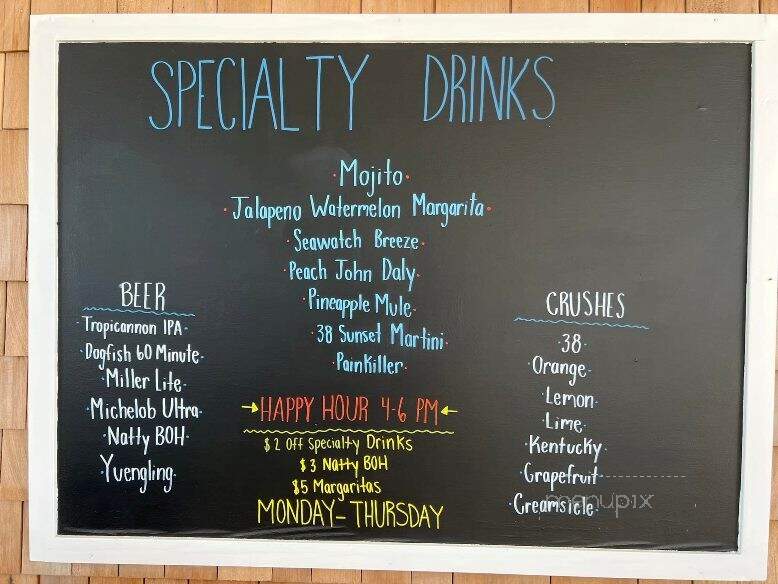 SPECIALTY DRINKS
Mojito
Jalapeno Watermelon Margarita
Seawatch Breeze
Peach John Daly
Pineapple Mule
38 Sunset Martini
Painkiller
BEER
Tropicannon IPA
Dogfish 60 Minute
Miller Lite
Michelob Ultra
Natty BOH
Yuengling
HAPPY HOUR 4-6 PM
$2 Off Specialty Drinks
$3 Natty BOH
$5 Margaritas
MONDAY-THURSDAY
CRUSHES
38
Orange
Lemon
Lime
Kentucky
Grapefruit
Creamsicle
menupix